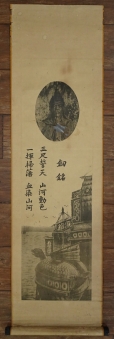 劔銘
三尺誓天 山河動色
一揮掃蕩 血染山河